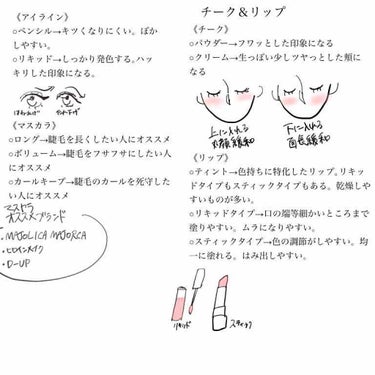 《アイライン》
○ペンシル→キツくなりにくい。ぼか
しやすい。
○リキッド→しっかり発色する。ハッ
キリした印象になる。
はねあげ
《マスカラ》
○ロング→睫毛を長くしたい人にオススメ
○ボリューム→睫毛をフサフサにしたい人
にオススメ
○カールキープ→睫毛のカールを死守した
い人にオススメ
マスカラ
オススメブランド
・MAJOLICA MAJORCA
・ヒロインメイク
・D-UP
チーク＆リップ
《チーク》
○パウダー→フワッとした印象になる
○クリーム→生っぽい少しツヤっとした頬に
なる
上に入れる
丸顔緩和
下に入れる
面長緩和
《リップ》
○ティント→色持ちに特化したリップ。リキッ
ドタイプもスティックタイプもある。乾燥しや
すいものが多い。
○リキッドタイプ→口の端等細かいところまで
塗りやすい。ムラになりやすい。
○スティックタイプ→色の調節がしやすい。均
一に塗れる。はみ出しやすい。
リキッド
スティック